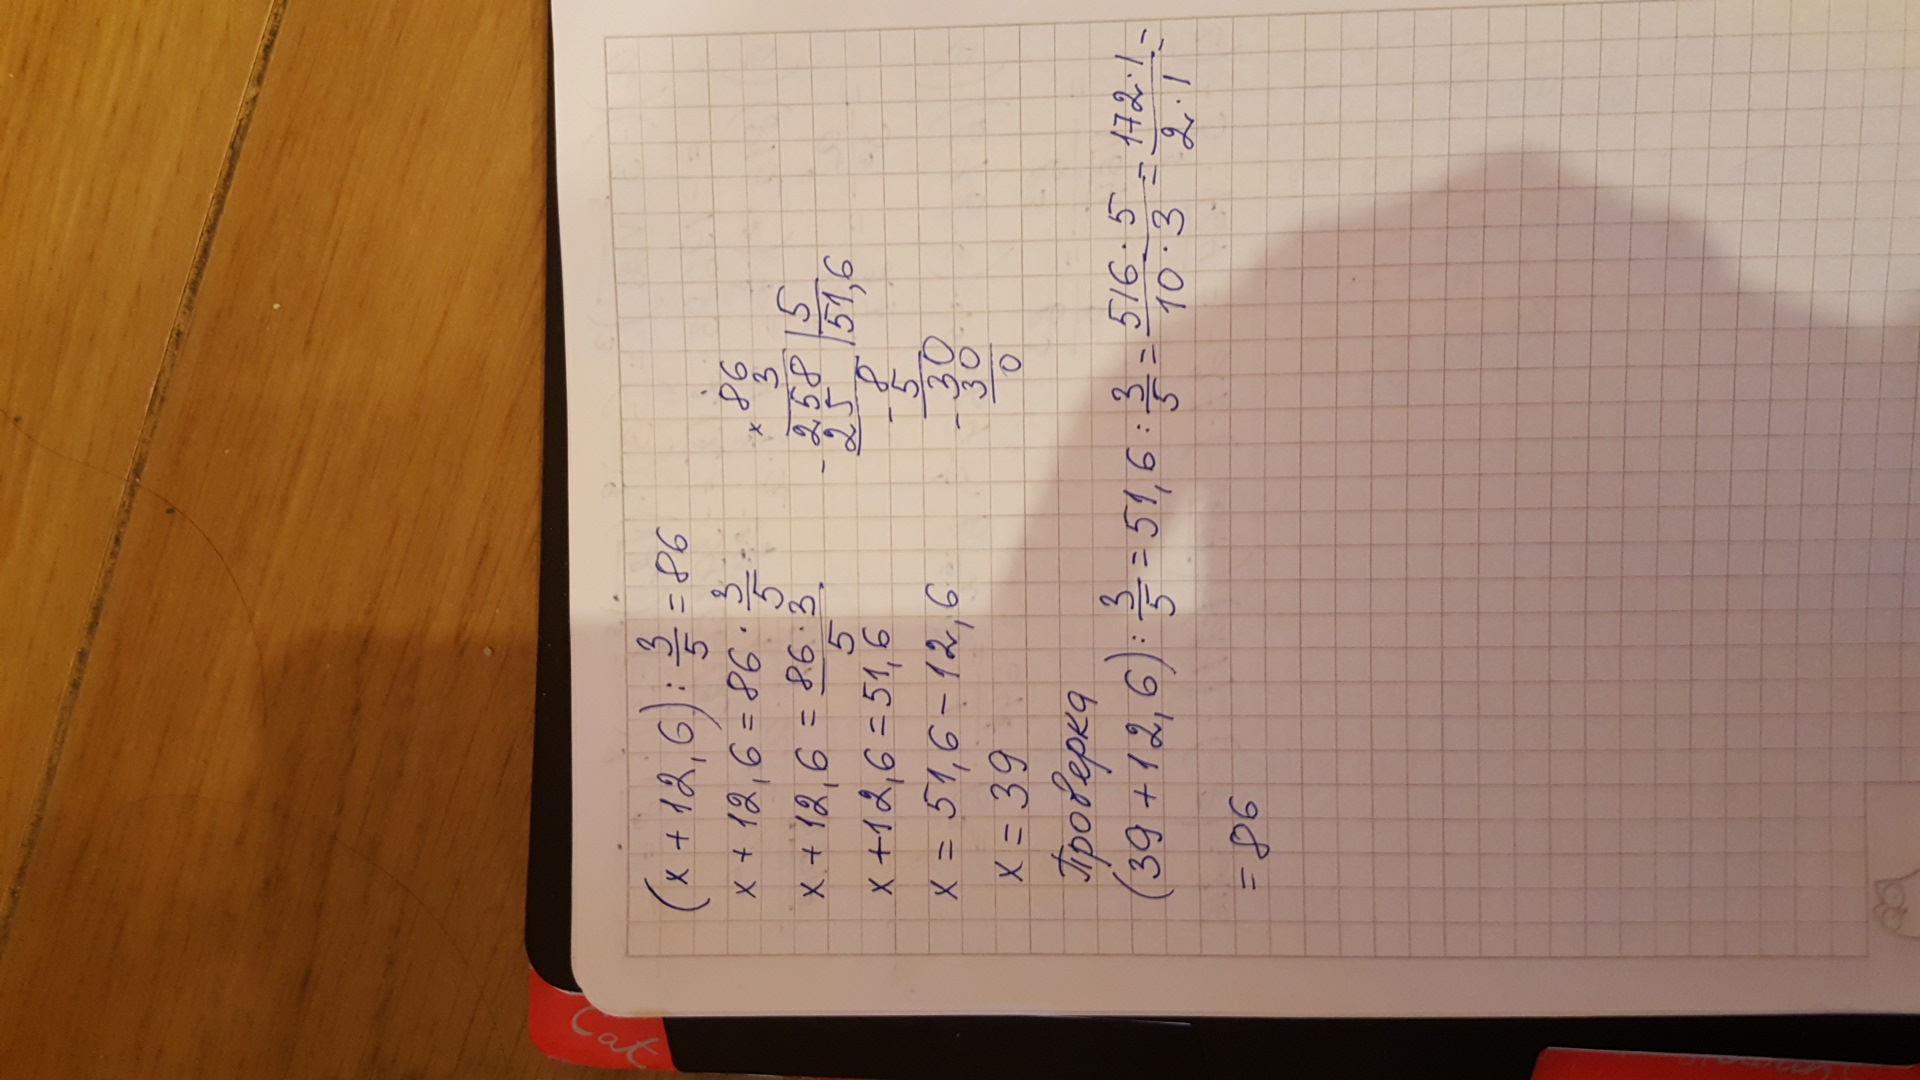 (x + 12,6) : 3/5 = 86
x + 12,6 = 86 · 3/5
x + 12,6 = 86 · 3 / 5
x + 12,6 = 51,6
x = 51,6 − 12,6
x = 39
× 86
3
− 258 | 5
25 | 51,6
− 8
5
− 30
30
0
Проверка
(39 + 12,6) : 3/5 = 51,6 : 3/5 = 516 · 5 / 10 · 3 = 172 · 1 / 2 · 1 =
= 86
Cat